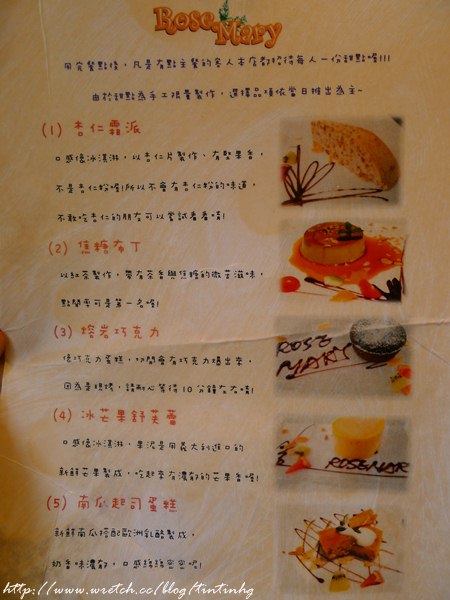 Rose Mary
用完餐點後，凡是有點主餐的客人本店都招待每人一份甜點喔!!!
由於甜點為手工限量製作，選擇品項依當日推出為主~
(1) 杏仁霜派
口感像冰淇淋，以杏仁片製作、有堅果香，
不是杏仁粉喔!所以不會有杏仁粉的味道，
不敢吃杏仁的朋友可以嘗試看看唷!
(2) 焦糖布丁
以紅茶製作，帶有茶香與焦糖的微苦滋味，
點閱率可是第一名喔!
(3) 熔岩巧克力
像巧克力蛋糕，切開會有巧克力爆出來，
因為是現烤，請耐心等待 10 分鐘左右唷!
(4) 冰芒果舒芙蕾
口感像冰淇淋，果泥是用義大利進口的
新鮮芒果製成，吃起來有濃郁的芒果香喔!
(5) 南瓜起司蛋糕
新鮮南瓜搭配歐洲乳酪製成，
奶香味濃郁，口感綿綿密密呢!
ROSE
MARY
ROSEMAR
http://www.wretch.cc/blog/tintinhg